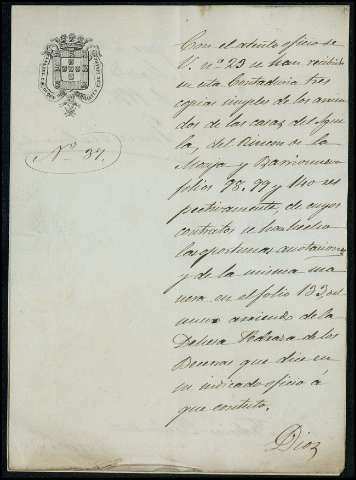 Nº 37.
Con el atento oficio de
V. nº 23 se han recibido
en esta Contaduria tres
copias simples de los arrien-
dos de las casas del Aguila,
del Rincon de la
Monja y
folios 98, 99 y 140 res
pectivamente, de cuyos
contratos se han hecho
las oportunas anotaciones
y de la misma ma
nera en el folio 133 el
nuevo arriendo de la
Dehesa Pedraza de los
que dice en
su indicado oficio á
que contesto.
Dios